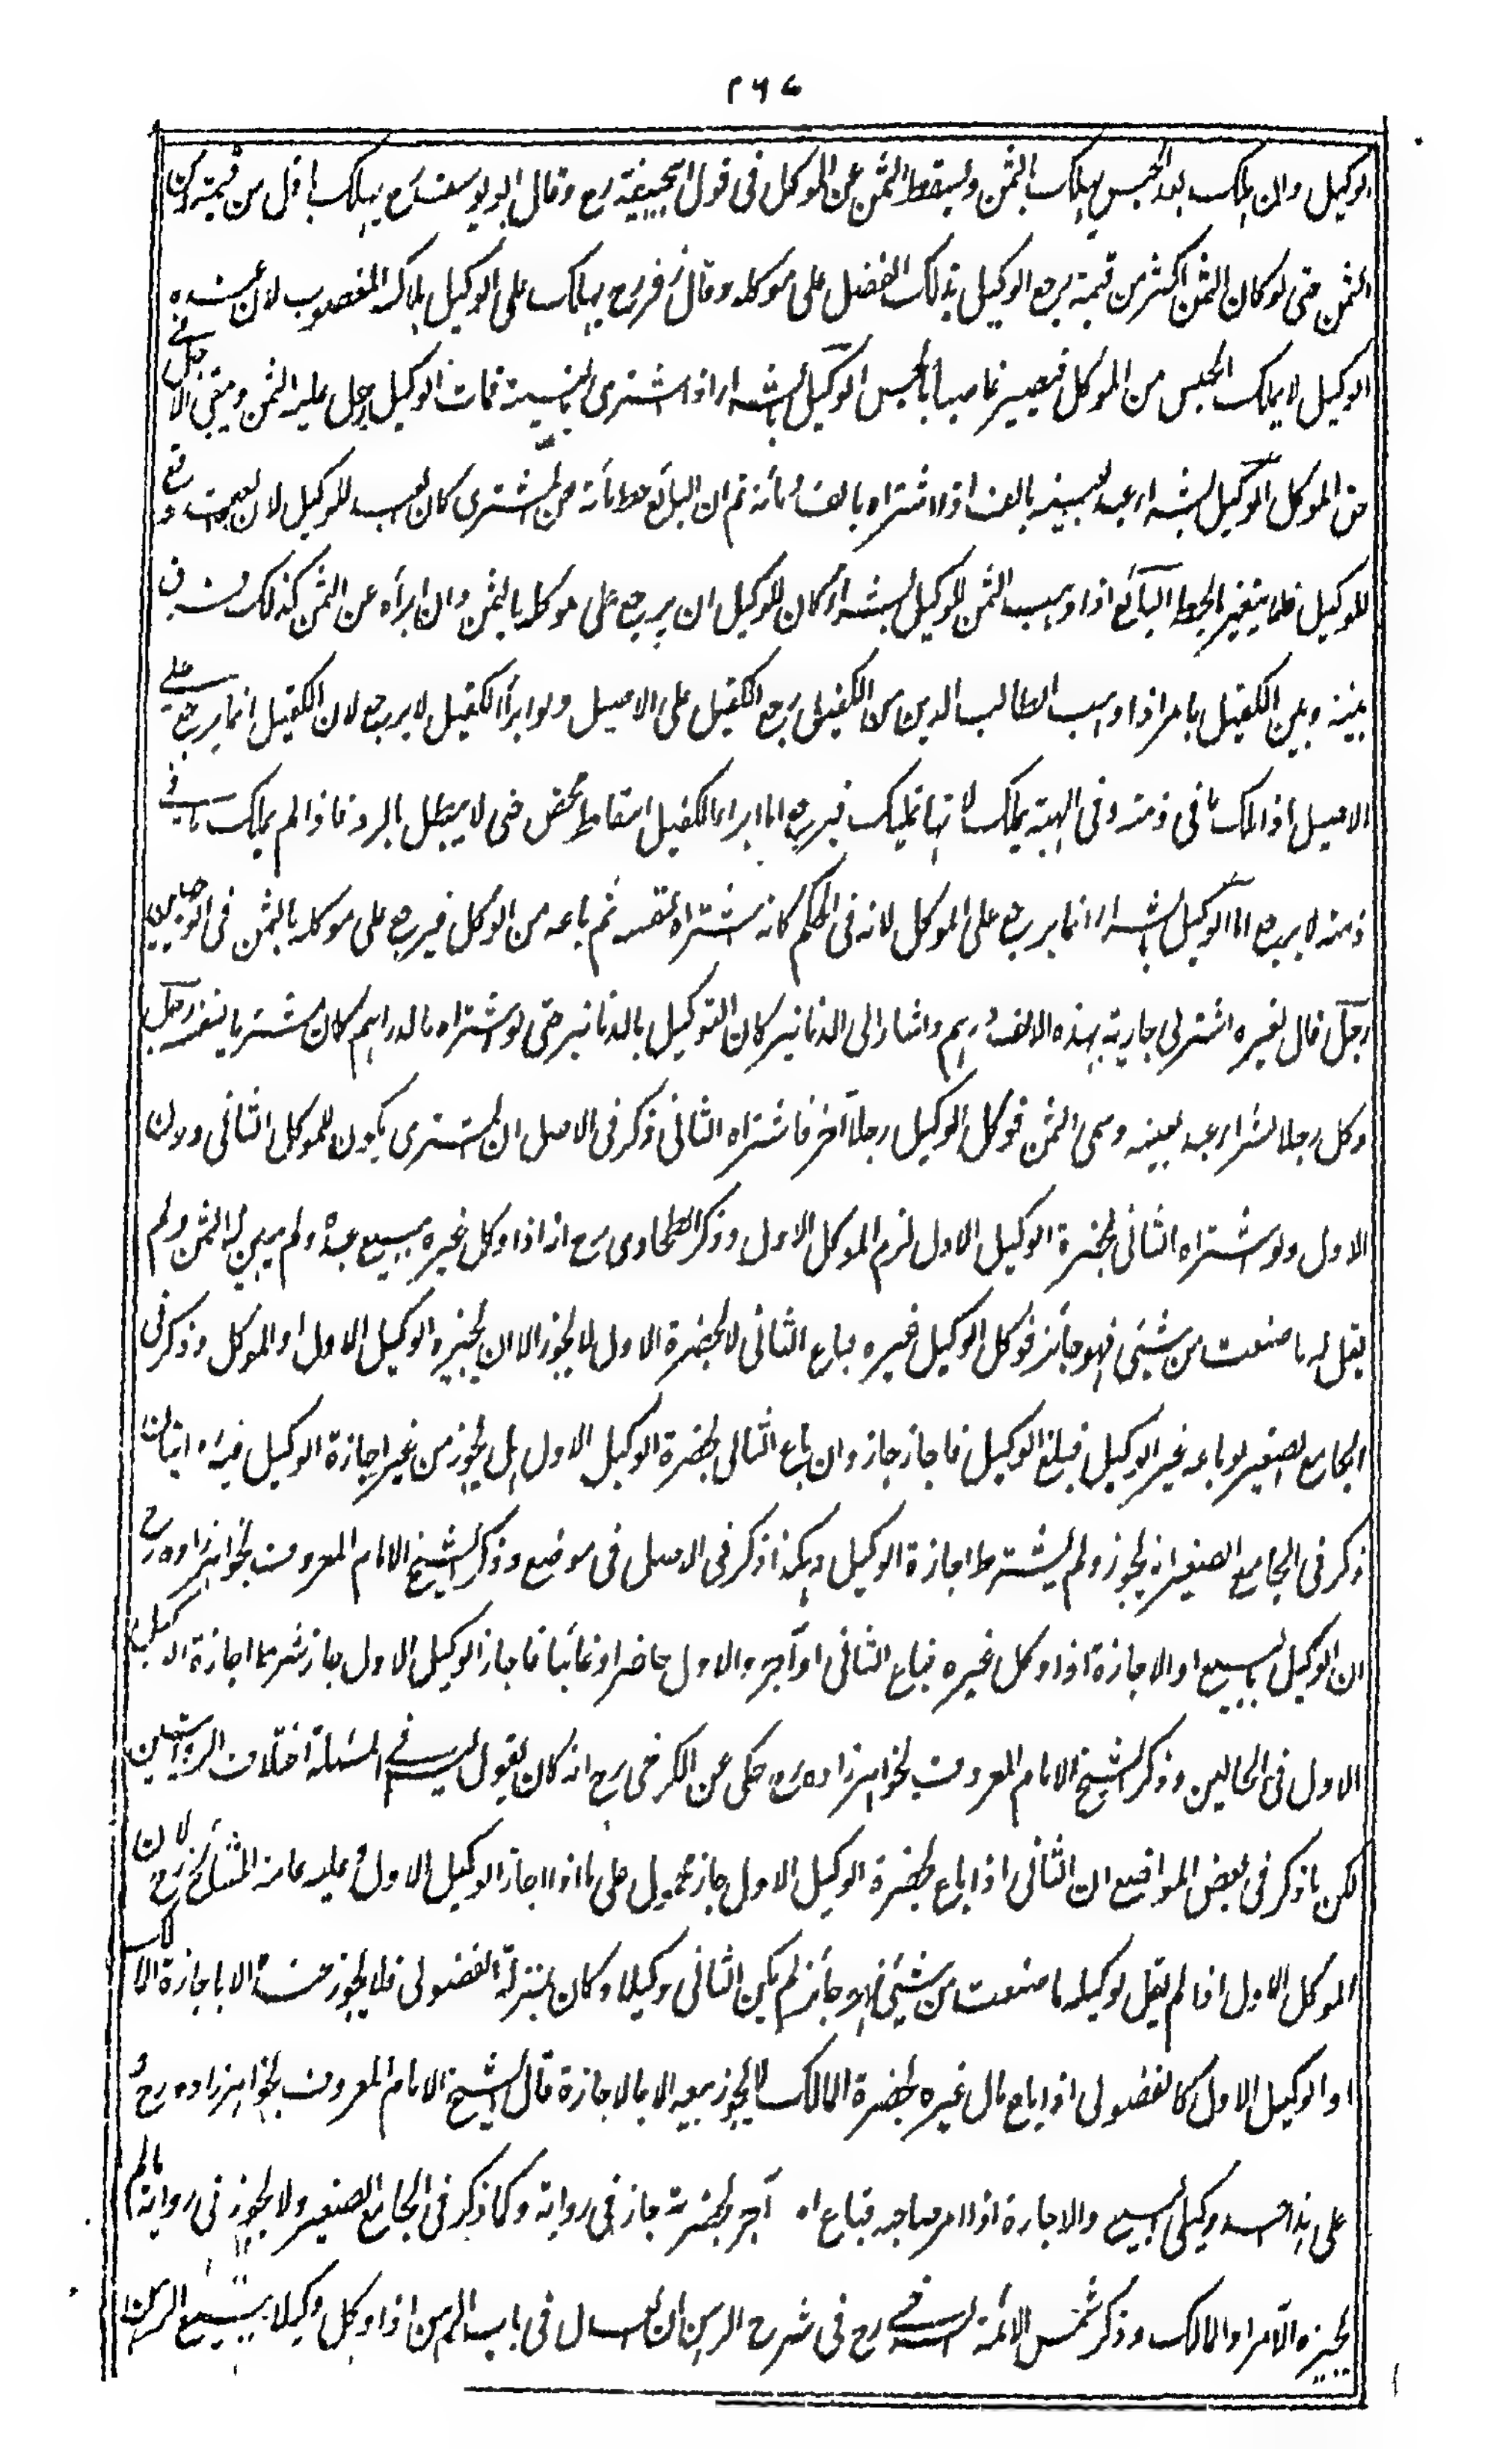 ٢٦٧
الوكيل وان هلك بعد الحبس يهلك بالثمن ويسقط الثمن عن الموكل فى قول ابيحنيفة رح وقال ابو يوسف رح يهلك باقل من قيمته ومن
الثمن حتى لو كان الثمن اكثر من قيمته يرجع الوكيل بذلك الفضل على موكله وقال زفر رح يهلك على الوكيل هلاك المغصوب لان عنده
الوكيل لا يملك الحبس من الموكل فيصير غاصبا بالحبس الوكيل بالشراء اذا اشترى بالنسيئة فمات الوكيل حل عليه الثمن ويبقى الاجل فى
حق الموكل الوكيل بشراء عبد بعينه بالف اذا اشتراه بالف ومائة ثم ان البائع حط مائة عن المشترى كان العبد للوكيل لان البيع وقع
للوكيل فلا يتغير بالحط البائع اذا وهب الثمن للوكيل بالشراء كان للوكيل ان يرجع على موكله بالثمن وان ابرأه عن الثمن كذلك وفرق
بينه وبين الكفيل بامر اذا وهب الطالب الدين من الكفيل رجع الكفيل على الاصيل ولو ابرأ الكفيل لا يرجع لان الكفيل انما يرجع على
الاصيل اذا ملك ما فى ذمته وفى الهبة يملك لانها تمليك فيرجع اما ابراء الكفيل اسقاط محض حتى لا يبطل بالرد فاذا لم يملك ما فى
ذمته لا يرجع اما الوكيل بالشراء انما يرجع على الموكل لانه فى الحكم كانه اشتراه لنفسه ثم باعه من الوكل فيرجع على موكله بالثمن فى الوجهين
رجل قال لغيره اشتر لى جارية بهذه الالف درهم واشار الى الدنانير كان التوكيل بالدنانير حتى لو اشتراه بالدراهم كان مشتريا لنفسه رجل
وكل رجلا بشراء عبد بعينه وسمى الثمن فوكل الوكيل رجلا آخر فاشتراه الثانى ذكر فى الاصل ان المشترى يكون للموكل الثانى دون
الاول ولو اشتراه الثانى بحضرة الوكيل الاول لزم الموكل الاول وذكر الطحاوى رح انه اذا وكل غيره ببيع عبده ولم يبين له الثمن ولم
يقل له ما صنعت من شيئ فهو جائز فوكل الوكيل غيره فباع الثانى لا بحضرة الاول لا يجوز الا ان يجيزه الوكيل الاول او الموكل وذكر فى
الجامع الصغير لو باعه غير الوكيل فبلغ الوكيل فاجاز جاز وان باع الثانى بحضرة الوكيل الاول هل يجوز من غير اجازة الوكيل فيه روايتان
ذكر فى الجامع الصغير انه يجوز ولم يشترط اجازة الوكيل وهكذا ذكر فى الاصل فى موضع وذكر الشيخ الامام المعروف بخواهرزاده رح
ان الوكيل بالبيع او الاجازة اذا وكل غيره فباع الثانى او آجر والاول حاضر او غائب فاجاز الوكيل الاول جاز شرط اجازة الوكيل
الاول فى الحالين وذكر الشيخ الامام المعروف بخواهرزاده رح حكى عن الكرخى رح انه كان يقول ليس فى المسئلة اختلاف الروايتين
لكن ما ذكر فى بعض المواضع ان الثانى اذا باع بحضرة الوكيل الاول جاز محمول على ما اذا اجاز الوكيل الاول وعليه عامة المشائخ رح لان
الموكل الاول اذا لم يقل لوكيله ما صنعت من شيئ فهو جائز لم يكن الثانى وكيلا وكان بمنزلة الفضولى فلا يجوز عقده الا باجازة المالك
او الوكيل الاول كالفضولى اذا باع مال غيره بحضرة المالك لا يجوز بيعه الا بالاجازة قال الشيخ الامام المعروف بخواهرزاده رح و
على هذا احد وكيلى البيع والاجارة اذا امر صاحبه فباع او آجر بحضرته جاز فى رواية وكما ذكر فى الجامع الصغير ولا يجوز فى رواية ما لم
يجيزه الآمر او المالك وذكر شمس الائمة السرخسى رح فى شرح الرهن ان العدل فى باب الرهن اذا وكل وكيلا ببيع الرهن